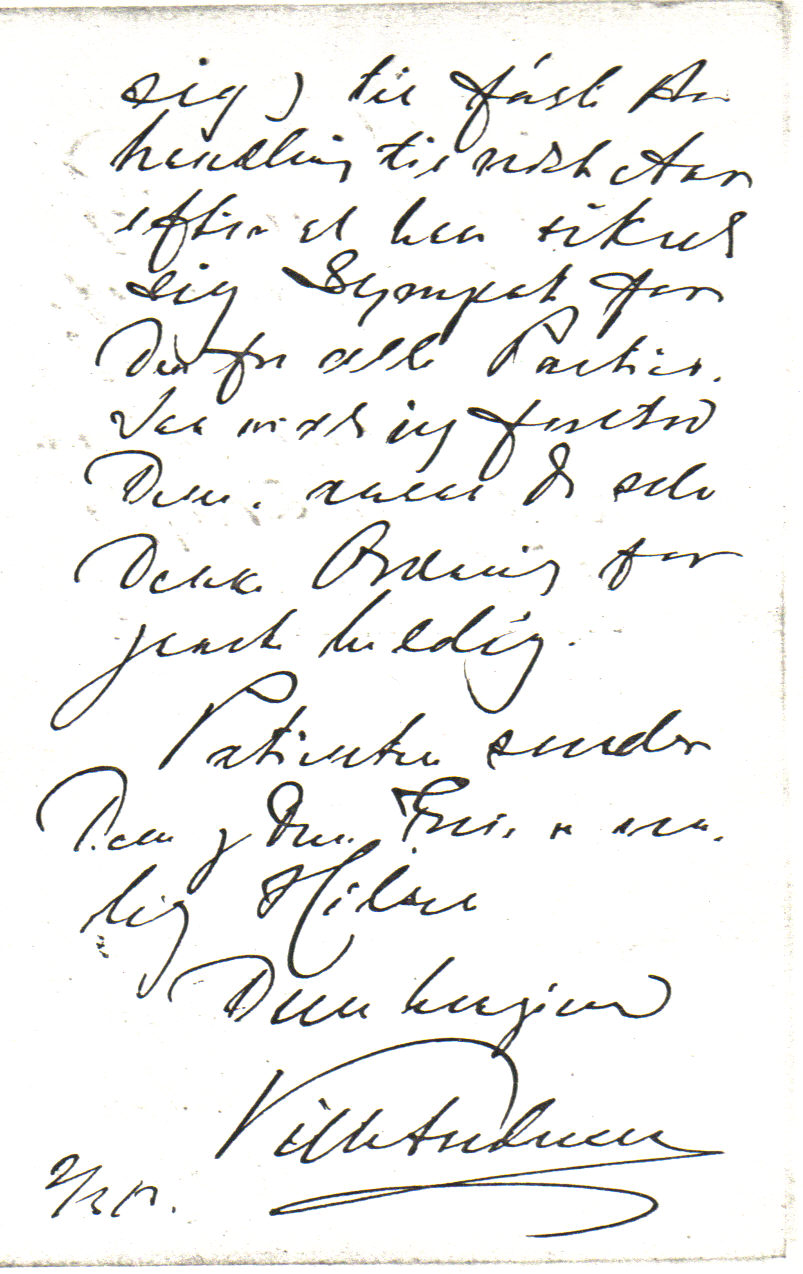 sig) til først An
handling til næste Aar
efter at have sikret
sig Sympati for
Den fra alle Partier.
Saa vidt jeg forstod
Dem, ansaa De selv
Denne Ordning for
ganske heldig.
Patienten sender
Dem og Deres Frue en ven
lig Hilsen
Deres hengivne
Vilh Andersen